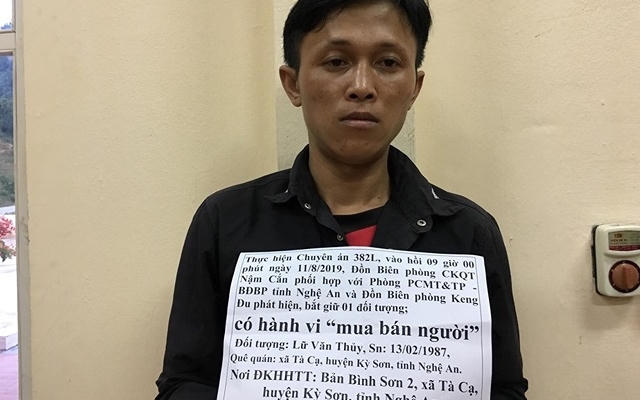 Thực hiện Chuyên án 382L, vào hồi 09 giờ 00
phút ngày 11/8/2019, Đồn Biên phòng CKQT
Nậm Cắn phối hợp với Phòng PCMT&TP -
BĐBP tỉnh Nghệ An và Đồn Biên phòng Keng
Đu phát hiện, bắt giữ 01 đối tượng;
có hành vi “mua bán người”
Đối tượng: Lữ Văn Thủy, Sn: 13/02/1987,
Quê quán: xã Tà Cạ, huyện Kỳ Sơn, tỉnh Nghệ An.
Nơi ĐKHHTT: Bản Bình Sơn 2, xã Tà Cạ,
huyện Kỳ Sơn, tỉnh Nghệ An